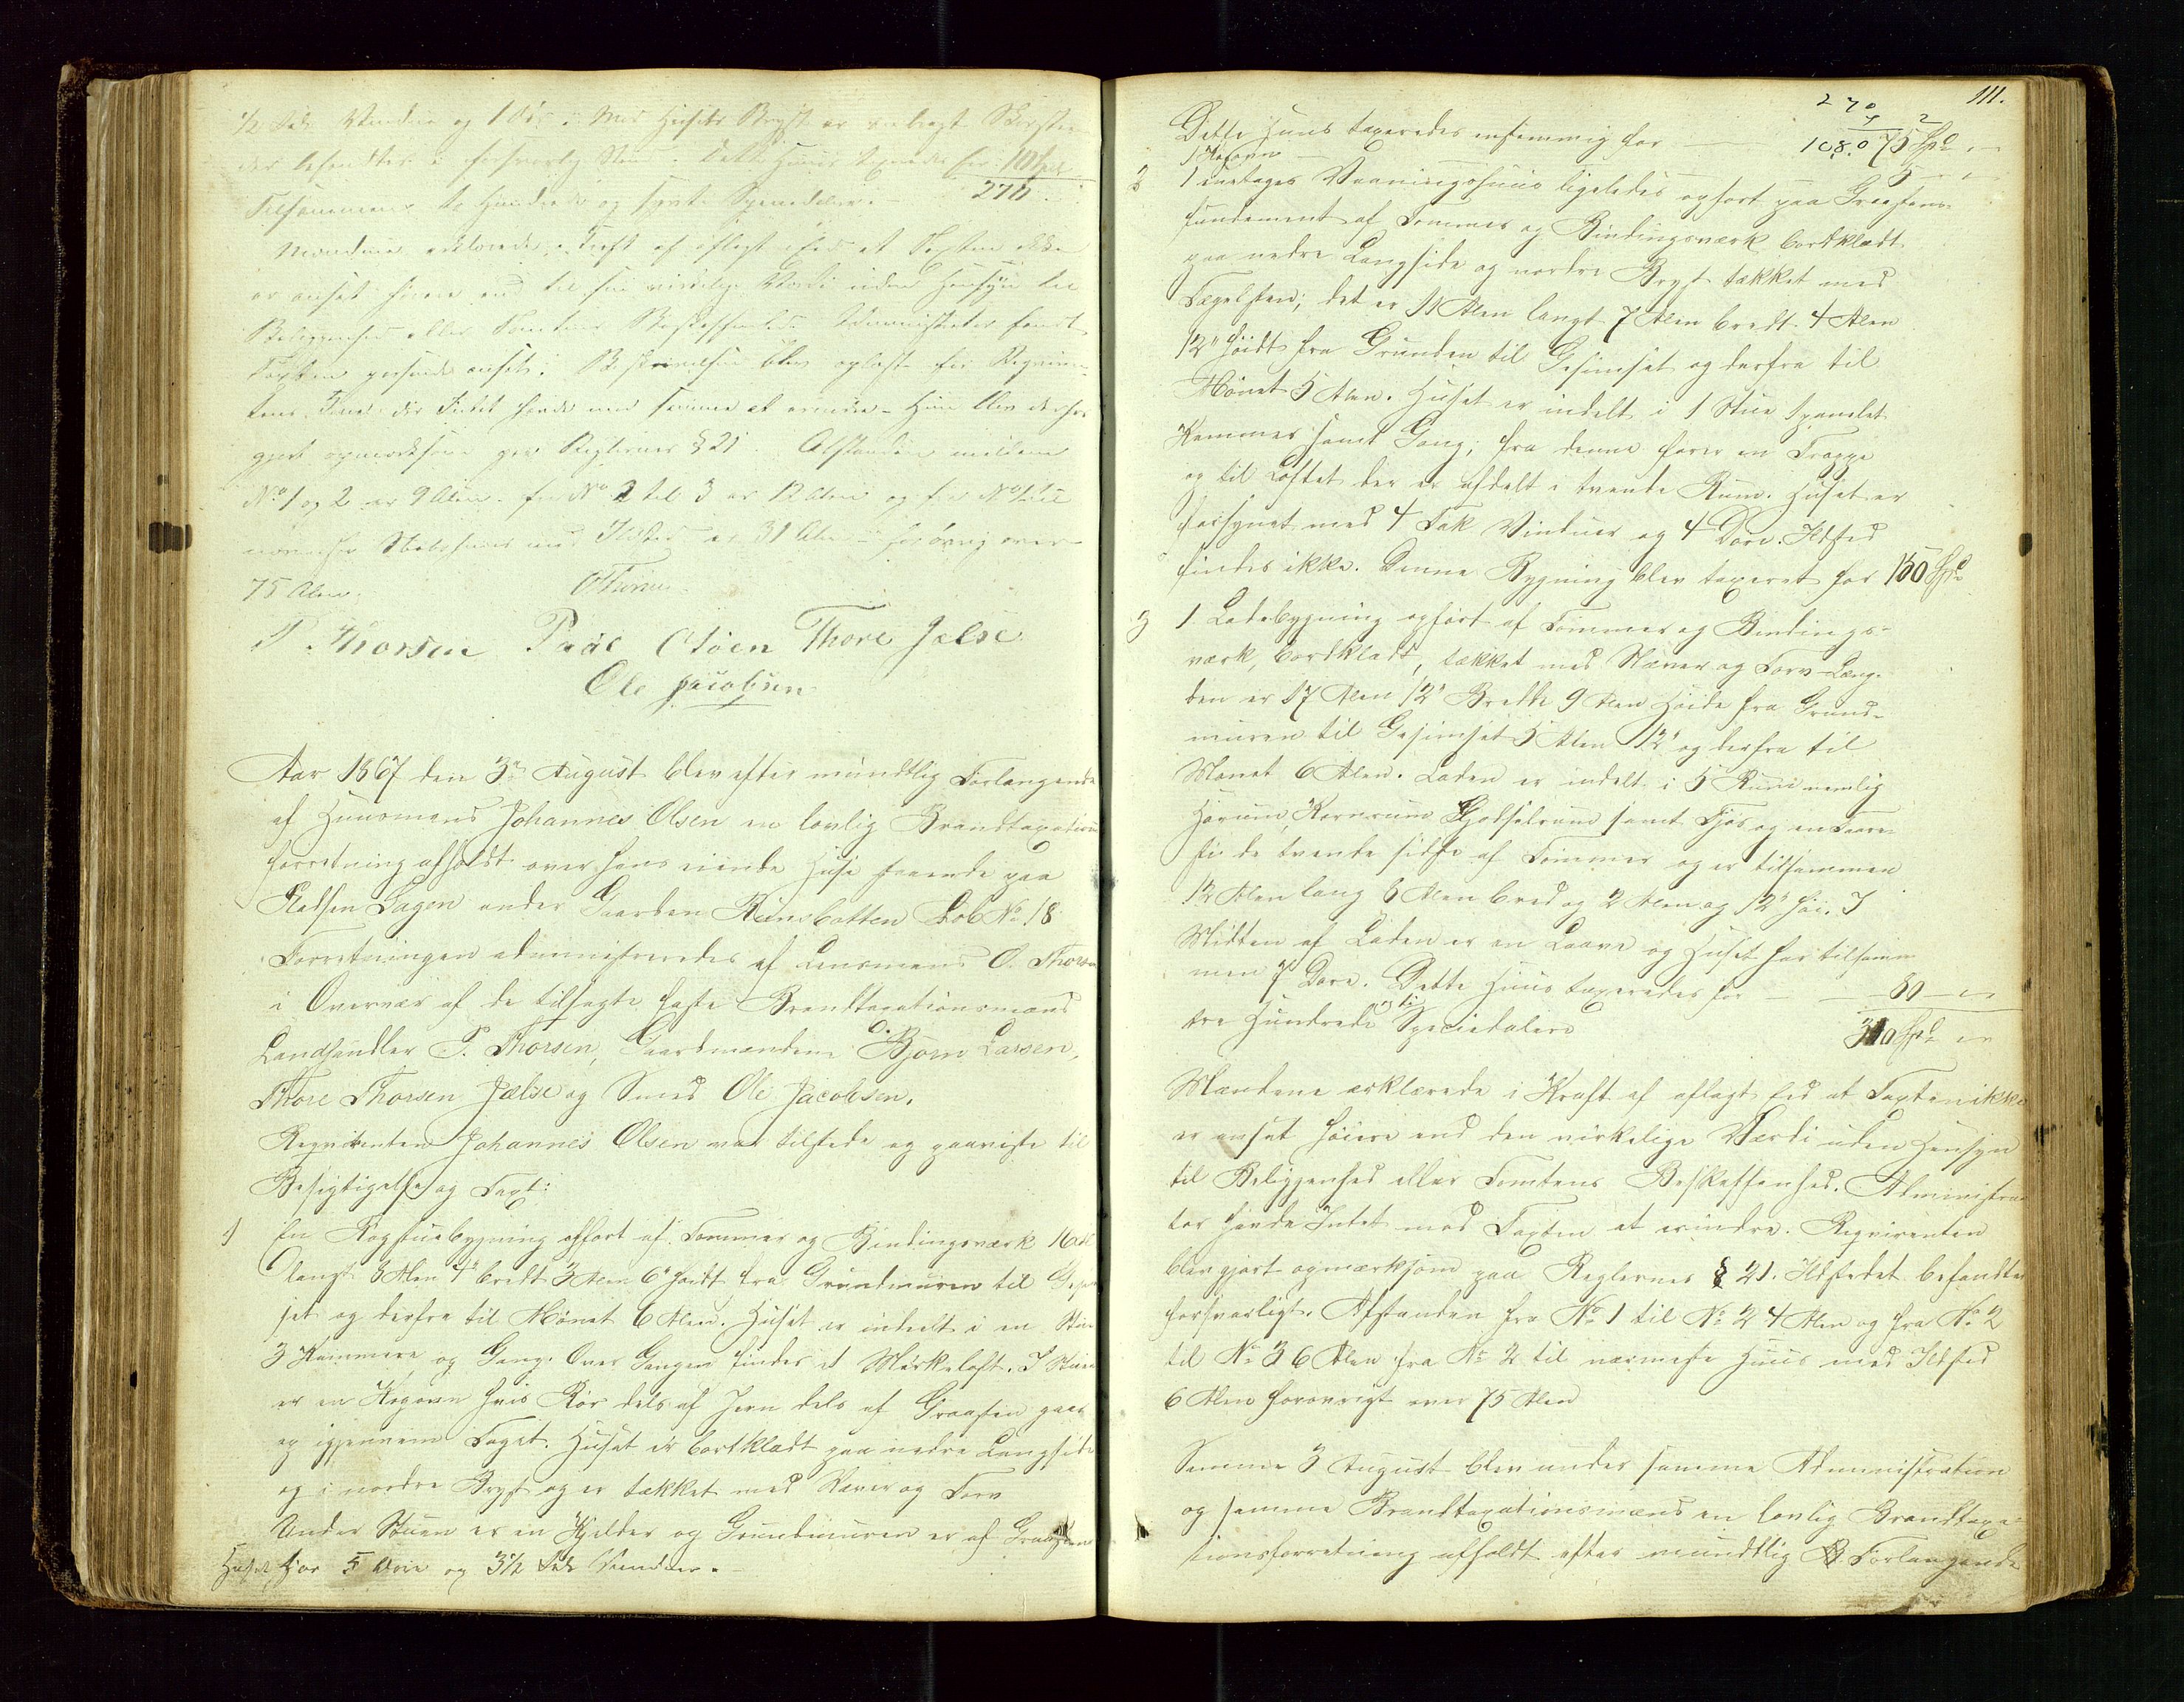 1/2 Fak Vindue og 1 Dør. Mod Husets Bryst er anbragt Skorsten
der befandtes i forsvarlig Stand. Dette Huus taxeredes for 10 Spd
Tilsammen to Hundrede og Spesiedaler. 270.
Mændene erklærede i Kraft af aflagt Eed at Taxten ikke
er ansat høiere end til sin virkelige Værdi uden Hensyn til
Beliggenhed eller Tomtens Beskaffenhed. Administrator fandt
Taxten passende ansat. Beskrivelsen blev oplæst for Reqviren-
ten der Intet havde mod samme at erindre. Han blev derhos
gjort opmærksom paa Reglernes § 21. Afstanden mellem
No 1 og 2 er 9 Alen. fra No 2 til 3 er 12 Alen og fra No 1 til
nærmeste med Ildsted er 31 Alen for øvrig over
75 Alen.
P. Thorsen Paal Olsen Thore Jelse
Ole Jacobsen
Aar 1867 den 3die August blev efter mundtlig Forlangende
af Huusmand Johannes Olsen en lovlig Brandtaxations
forretning afholdt over hans eiende Huse staaende paa
Pladsen Hagen under Gaarden Lob No 18
Forretningen administreredes af Lensmand O. Thorsen
i Overvær af de tilsagte faste Brandtaxationsmænd
Landhandler P. Thorsen, Gaardmændene Bjørn Larsen,
Thore Thorsen Jælse og Smed Ole Jacobsen.
Reqvirenten Johannes Olsen var tilstede og paaviste til
Besigtigelse og Taxt:
1) En Røgstuebygning opført af Tømmer og Bindingsværk 16 Al
langt 8 Alen 4" bredt 3 Alen 6" høidt fra Grundmuren til Gesim
set og derfra til Mønet 6 Alen. Huset er indeelt i en Stue
3 Kammere og Gang. Over Gangen findes et Mørkeloft. I Stuen
er en Kogovn hvis Rør dels af Jern dels af Graasten gaar
op igjennem Taget. Huset er bordklædt paa nedre Langside
og i nordre Bryst og er tækket med Næver og Torv
Under Stuen er en Kjelder og Grundmuren er af Graasten
Huset har 5 Døre og 3 1/2 Fak Vinduer.
111.
270
Dette Huus taxeredes enstemmig for 75 Spd
108.0
1 Kogovn 5
2 1 enetages Vaaningshuus ligeledes opført paa Graastens-
fundament af Tømmer og Bindingsværk bordklædt
paa nedre Langside og nordre Bryst tækket med
Tegelsten; det er 11 Alen langt 7 Alen bredt 4 Alen
12" høidt fra Grunden til Gesimset og derfra til
Mønet 5 Alen. Huset er indelt i 1 Stue 1 panelet
Kammer samt Gang; fra denne fører en Trappe
op til Loftet der er afdelt i tvende Rum. Huset er
forsynet med 4 Fak Vinduer og 4 Døre. Ildsted
findes ikke. Denne Bygning blev taxeret for 150 Spd
3 1 Ladebygning opført af Tømmer og Bindings-
værk, bordklædt, tækket med Næver og Torv Læng-
den er 17 Alen 12" Bredde 9 Alen Høide fra Grund-
muren til Gesimset 5 Alen 12" og derfra til
Mønet 6 Alen. Laden er indelt i 5 Rum nemlig
Hørum, Kornrum Gjødselrum samt Fjøs og en Faare-
sti de tvende sidste af Tømmer og er tilsammen
12 Alen lang 6 Alen bred og 2 Alen og 12" høi. I
Midten af Laden er en Laave og Huset har tilsam
men 7 Døre. Dette Huus taxeredes for 80
tre Hundrede og ti Speciedalere 310 Spd
Mændene erklærede i Kraft af aflagt Eed at Taxten ikke
er ansat høiere end den virkelige Værdi uden Hensyn
til Beliggenhed eller Tomtens Beskaffenhed. Administra
tor havde Intet mod Taxten at erindre. Reqvirenten
blev gjort opmærksom paa Reglernes § 21. Ildstedet befandtes
forsvarligt. Afstanden fra No 1 til No 2 4 Alen og fra No 2
til No 3 6 Alen fra No 2 til nærmeste Huus med Ildsted
6 Alen forøvrigt over 75 Alen
Samme 3 August blev under samme Administration
og samme Brandtaxationsmænd en lovlig Brandtaxa
tionsforretning afholdt efter mundtlig Forlangende